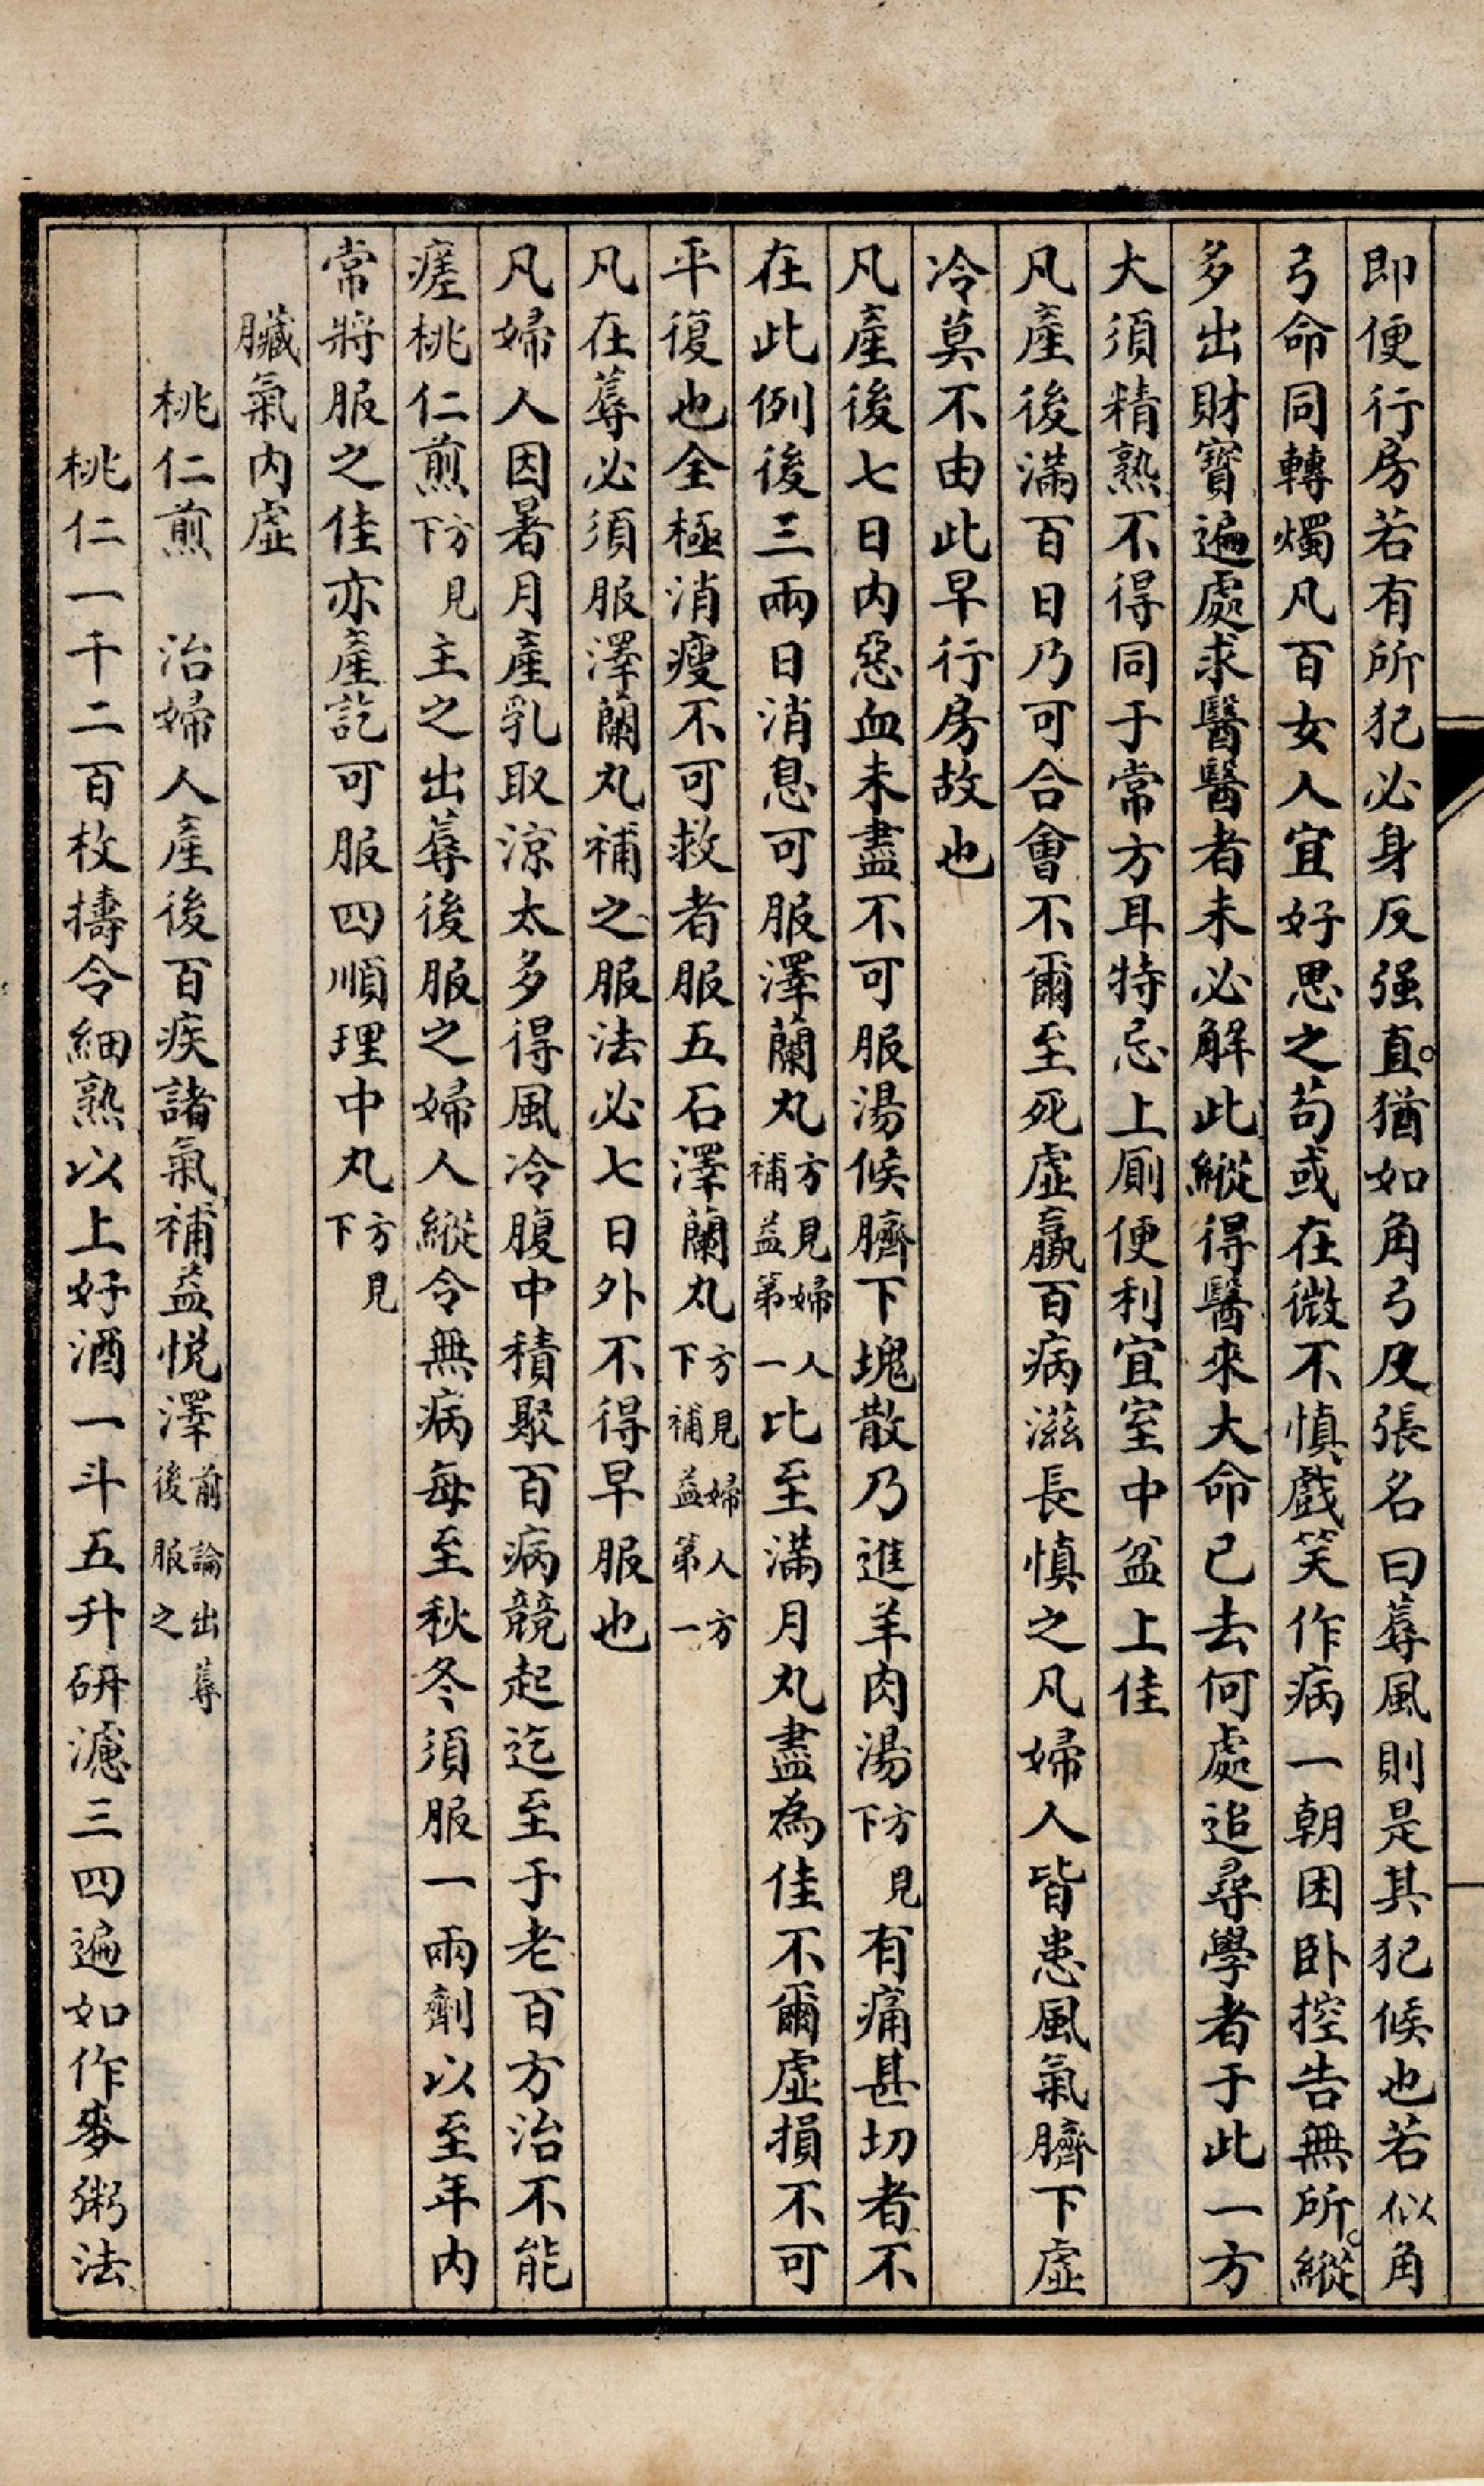 即便行房若有所犯必身反强直猶如角弓反張名曰蓐風則是其犯候也若似角
弓命同轉燭凡百女人宜好思之苟或在微不慎戲笑作病一朝困卧控告無所縱
多出財寳遍處求醫醫者未必解此縱得醫來大命已去何處追尋學者于此一方
大須精熟不得同于常方耳特忌上厠便利宜室中盆上佳
凡產後滿百日乃可合會不爾至死虛羸百病滋長慎之凡婦人皆患風氣臍下虛
冷莫不由此早行房故也
凡產後七日内惡血未盡不可服湯候臍下塊散乃進羊肉湯方見下有痛甚切者不
在此例後三兩日消息可服澤蘭丸方見婦人補益第一比至滿月丸盡為佳不爾虛損不可
平復也全極消瘦不可救者服五石澤蘭丸方見婦人方下補益第一
凡在蓐必須服澤蘭丸補之服法必七日外不得早服也
凡婦人因暑月產乳取涼太多得風冷腹中積聚百病競起迄至于老百方治不能
瘥桃仁煎方見下主之出蓐後服之婦人縱令無病每至秋冬須服一兩劑以至年内
常將服之佳亦產訖可服四順理中丸方見下
臟氣内虛
桃仁煎 治婦人產後百疾諸氣補益悦澤前論出蓐後服之
桃仁一千二百枚擣令細熟以上好酒一斗五升研濾三四遍如作麥粥法